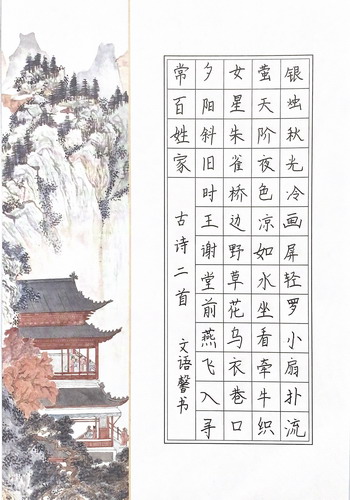 银烛秋光冷画屏轻罗小扇扑流
萤天阶夜色凉如水坐看牵牛织
女星朱雀桥边野草花乌衣巷口
夕阳斜旧时王谢堂前燕飞入寻
常百姓家
古诗二首
文语馨书